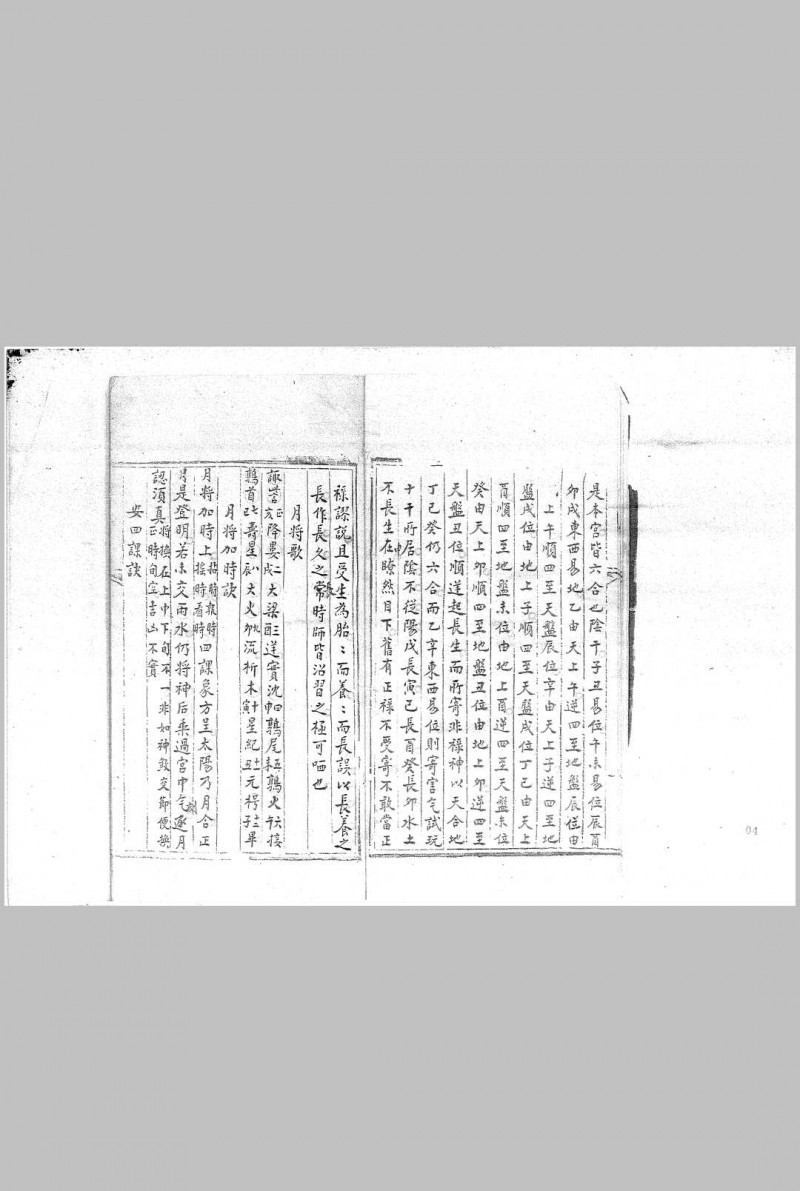 是本宮皆六合也陰干子丑易位午未易位辰酉
卯戌東西易地乙由天上午逆四至地盤辰位由
上午順四至天盤辰位辛由天上子逆四至地
盤戌位由地上子順四至天盤戌位丁己由天上
酉順四至地盤未位由地上酉逆四至天盤未位
癸由天上卯順四至地盤丑位由地上卯逆四至
天盤丑位順逆起長生而所寄非祿神以天合地
丁己癸仍六合而乙辛東西易位則寄宮气試玩
十干所居陰不從陽戊長寅己長酉癸長卯水土
不長生在申瞭然目下舊有正祿不受寄不敢當正
祿謬說且受生為胎〻而養〻而長誤以長養之
長作長久之常時師皆沿習之極可哂也
月將歌
諏訾正亥降婁二戌大梁酉三送實沈四申鶉尾五鶉火六午接
鶉首七壽星辰八大火九流析木十寅星紀十一丑元枵十二子畢
月將加時訣
月將加時上 四課象方呈太陽乃月合正
月是登明若未交雨水仍將神后乘過宮中气逐月
認須真 一非如神煞交節便換
安四課訣
04